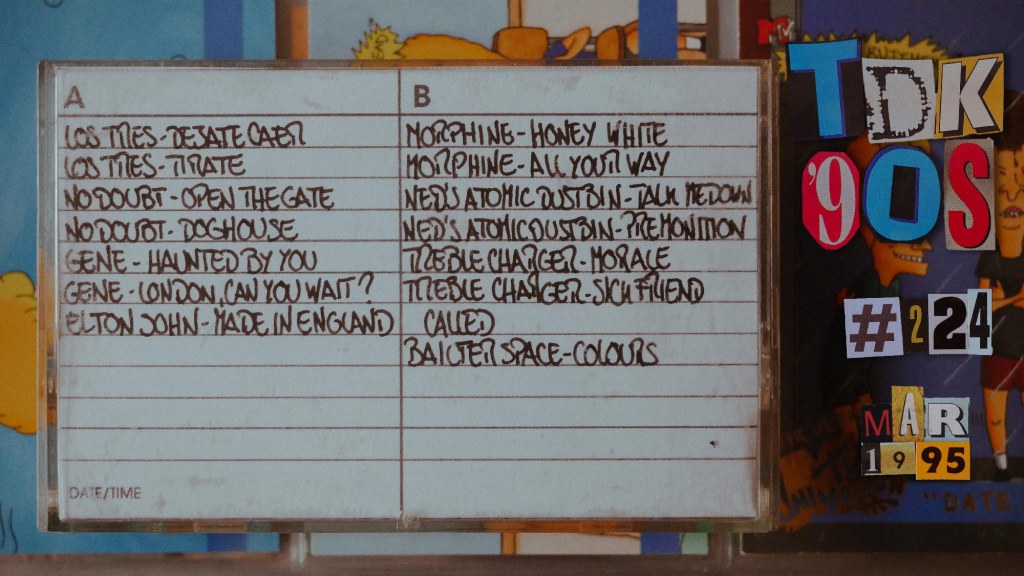 A
LOS TRES - DEJATE CAER
LOS TRES - TIRATE
NO DOUBT - OPEN THE GATE
NO DOUBT - DOGHOUSE
GENE - HAUNTED BY YOU
GENE - LONDON, CAN YOU WAIT?
ELTON JOHN - MADE IN ENGLAND
DATE/TIME
B
MORPHINE - HONEY WHITE
MORPHINE - ALL YOUR WAY
NED'S ATOMIC DUSTBIN - TALK ME DOWN
NED'S ATOMIC DUSTBIN - PREMONITION
TREBLE CHARGER - MORALE
TREBLE CHARGER - SICK FRIEND
CALLED
BAILTER SPACE - COLOURS
MTV
TDK
'90S
#224
MAR
1995
"DATE